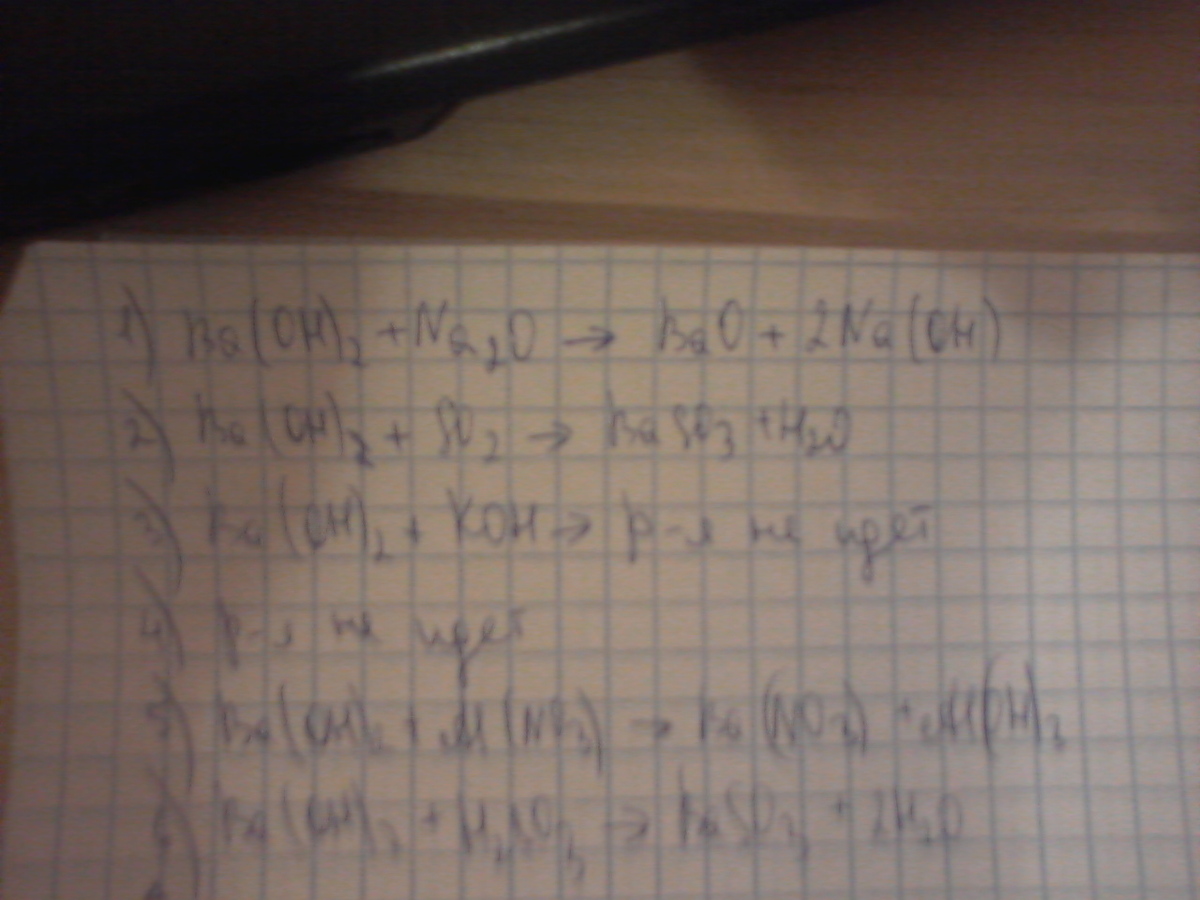 1) Ba(OH)₂ + Na₂O → BaO + 2Na(OH)
2) Ba(OH)₂ + SO₂ → BaSO₃ + H₂O
3) Ba(OH)₂ + KOH → р-я не идет
4) р-я не идет
5) Ba(OH)₂ + Al(NO₃) → Ba(NO₃) + Al(OH)₃
6) Ba(OH)₂ + H₂SO₃ → BaSO₃ + 2H₂O